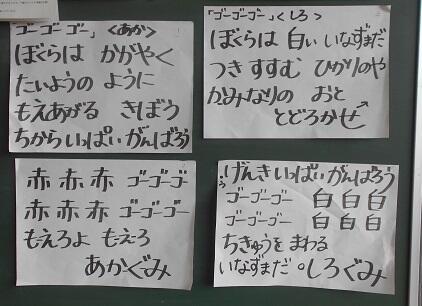 ゴーゴーゴー」<あか>
ぼくらは かがやく
たいようの ように
もえあがる きぼう
ちからいっぱいがんばろう
赤 赤 赤 ゴーゴーゴー
赤 赤 赤 ゴーゴーゴー
もえろよ もえーろ
あかぐみ
「ゴーゴーゴー」<しろ>
ぼくらは 白い いなずまだ
つき すすむ ひかりのや
かみなりの おと
とどろかせ
げんきいっぱいがんばろう
ゴーゴーゴー 白 白 白
ゴーゴーゴー 白 白 白
ちきゅうを まわる
いなずまだ。しろぐみ